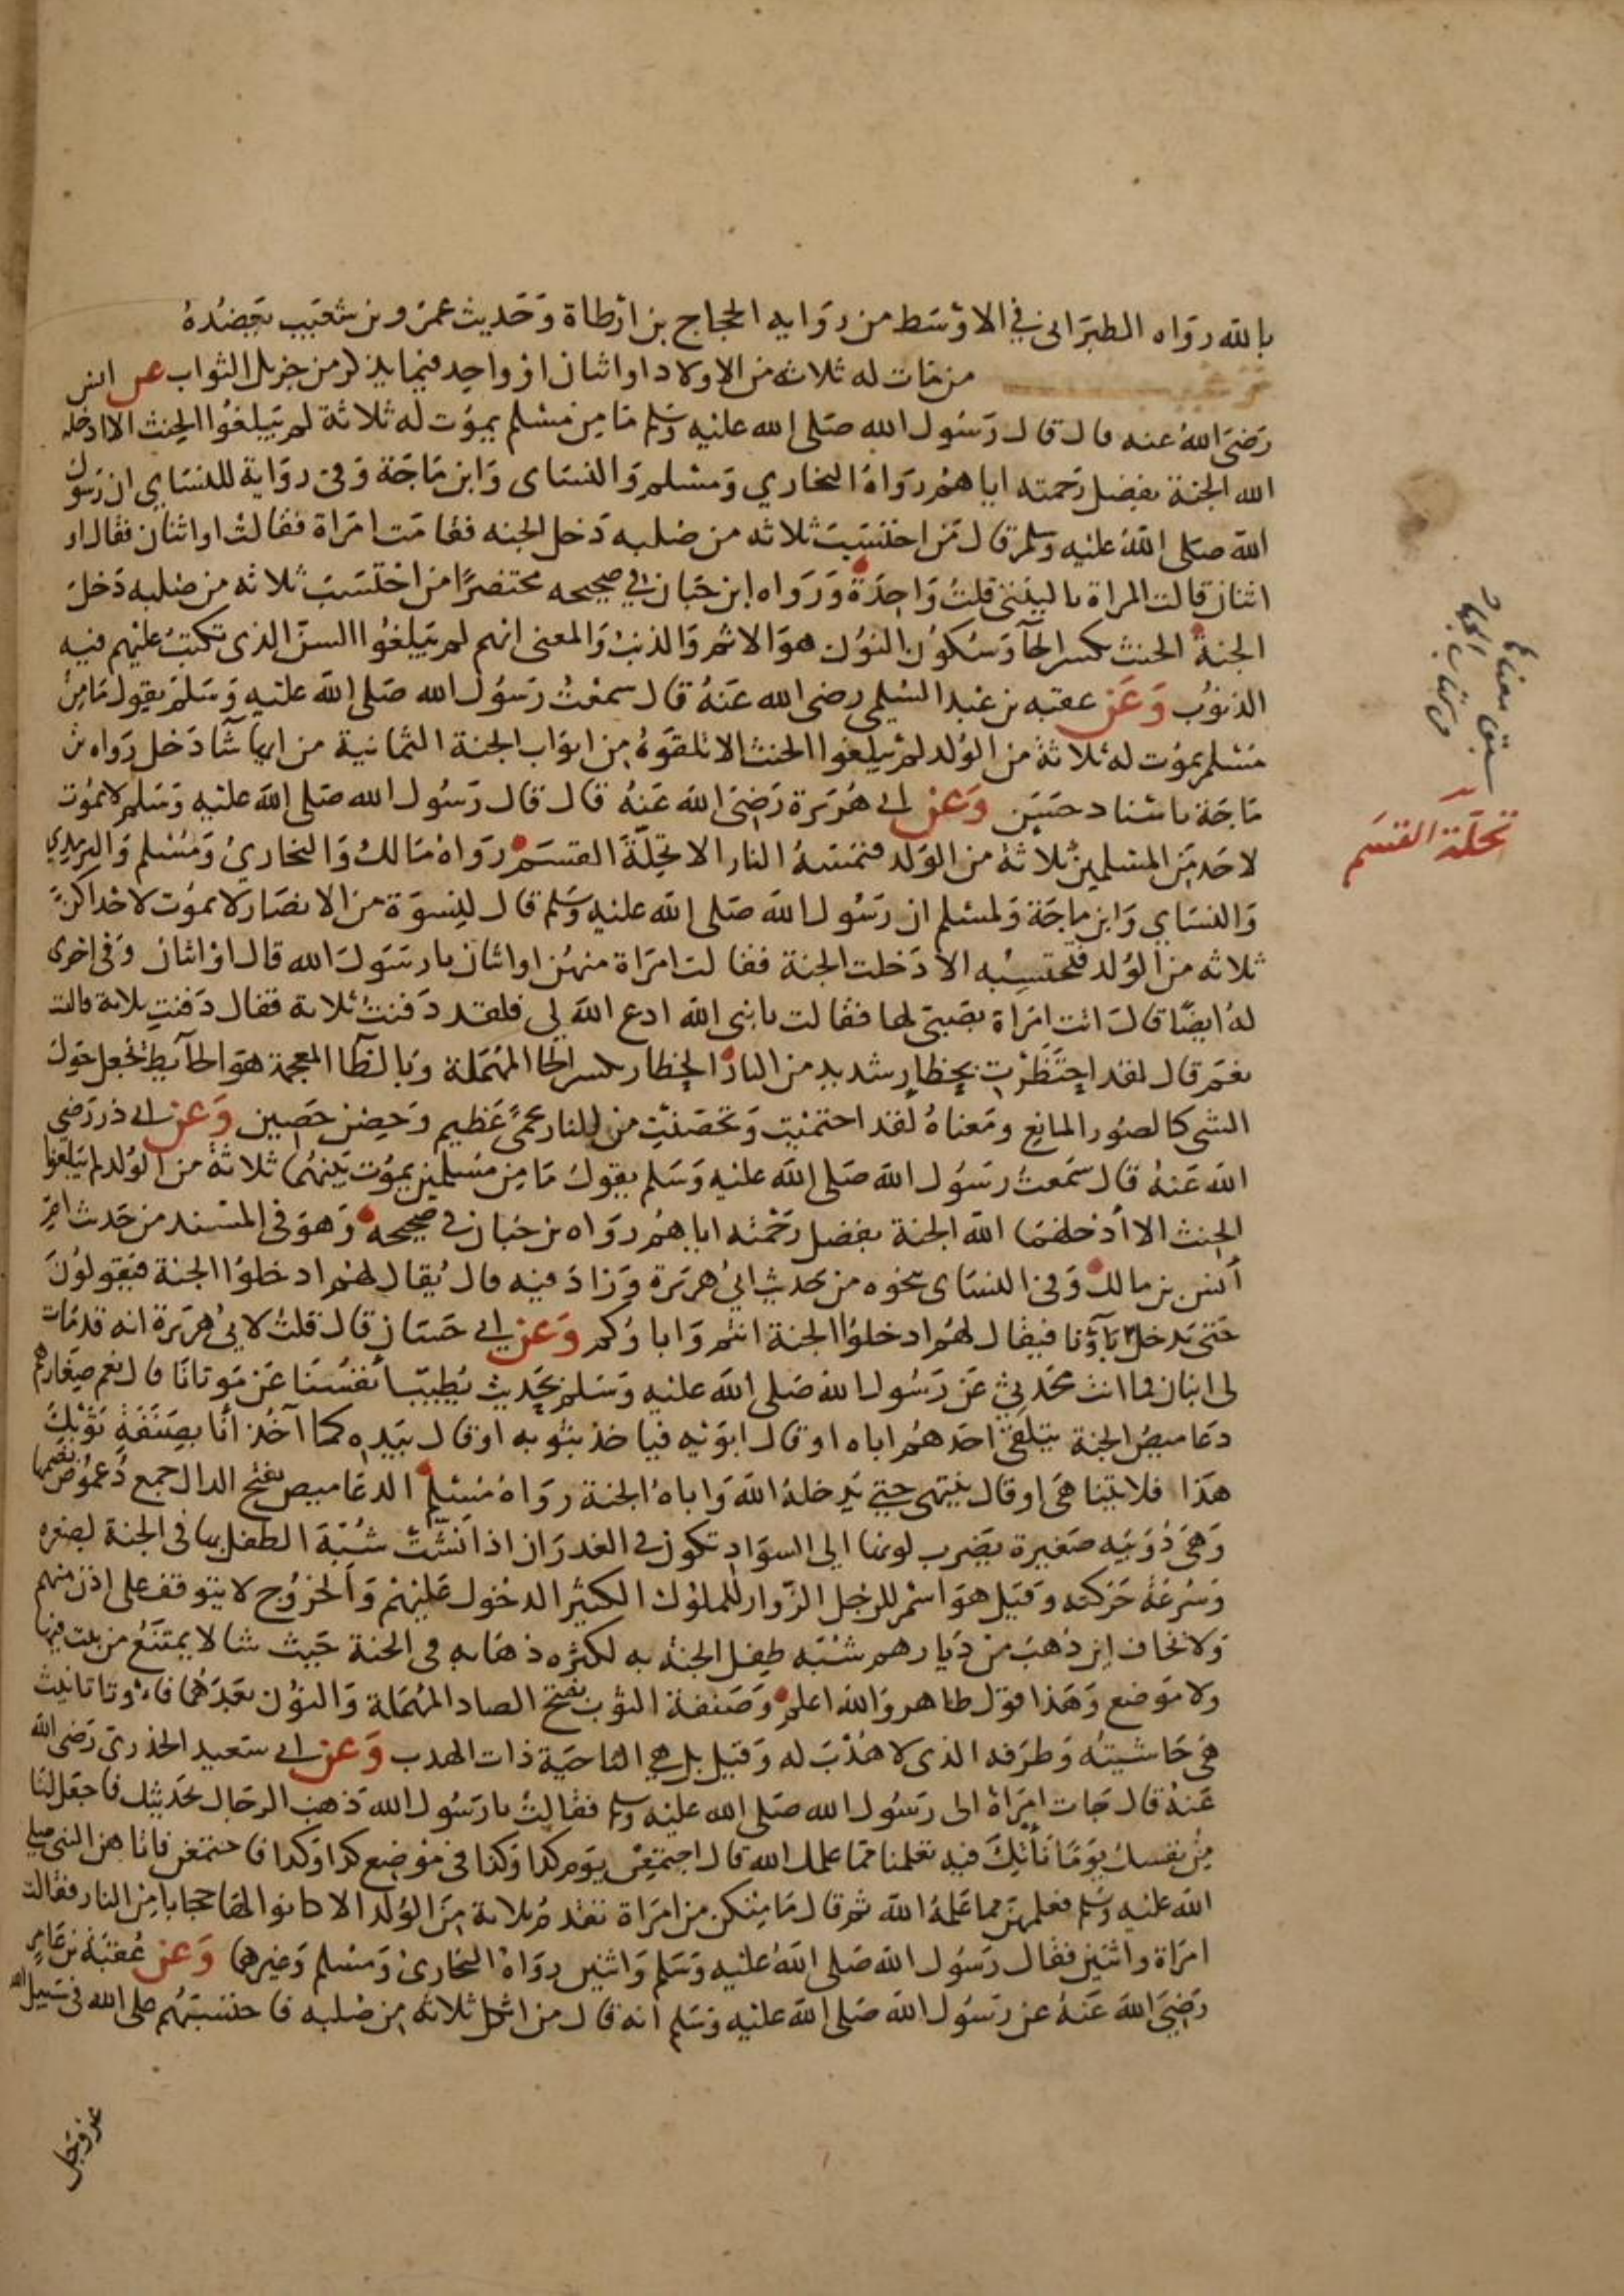 بالله رواه الطبرانى فى الاوسط من روايه الحجاج بن ارطاة وحديث عمرو بن شعيب يعضده
من مات له ثلاثه من الاولاد او اثنان او واحد فيما يذكر من جزيل الثواب عن انس
رضى الله عنه قال قال رسول الله صلى الله عليه وسلم ما من مسلم يموت له ثلاثة لم يبلغوا الحنث الا ادخله
الله الجنة بفضل رحمته اياهم رواه البخاري ومسلم والنساى وابن ماجة وفى رواية للنساي ان رسول
الله صلى الله عليه وسلم قال من احتسب ثلاثه من صلبه دخل الجنه فقامت امراة فقالت او اثنان فقال او
اثنان قالت المراة ياليتنى قلت واحدة ورواه ابن حبان فى صحيحه مختصرًا من احتسب ثلاثه من صلبه دخل
الجنة الحنث بكسر الحآ وسكون النون هو الاثم والذنب والمعنى انهم لم يبلغوا السن الذى تكتب عليهم فيه
الذنوب وعن عقبه بن عبد السلمى رضى الله عنه قال سمعت رسول الله صلى الله عليه وسلم يقول ما من
مسلم يموت له ثلاثة من الولد لم يبلغوا الحنث الا تلقوه من ابواب الجنة الثمانية من ايها شآ دخل رواه بن
ماجة باسناد حسن وعن ابى هريرة رضى الله عنه قال قال رسول الله صلى الله عليه وسلم لا يموت
لاحد من المسلمين ثلاثة من الولد فتمسه النار الا تحلة القسم رواه مالك والبخاري ومسلم والترمذي
والنساي وابن ماجة ولمسلم ان رسول الله صلى الله عليه وسلم قال لنسوة من الانصار لا يموت لاحداكن
ثلاثه من الولد فتحتسبه الا دخلت الجنة فقالت امراة منهن او اثنان يا رسول الله قال او اثنان وفى اخرى
له ايضًا قال اتت امراة بصبى لها فقالت يا نبى الله ادع الله لى فلقد دفنت ثلاثة فقال دفنت ثلاثة قالت
نعم قال لقد احتظرت بحظار شديد من النار الحظار بكسر الحا المهملة وبالظآ المعجمة هو الحآيط تجعل حول
الشى كالصور المانع ومعناه لقد احتميت وتحصنت من النار بحمى عظيم وحصن حصين وعن ابى ذر رضى
الله عنه قال سمعت رسول الله صلى الله عليه وسلم يقول ما من مسلمين يموت بينهما ثلاثة من الولد لم يبلغوا
الحنث الا أدخلهما الله الجنة بفضل رحمته اياهم رواه بن حبان فى صحيحه وهو فى المسند من حديث ام
أنس بن مالك وفى النساى بنحوه من حديث ابى هريرة وزاد فيه قال يقال لهم ادخلوا الجنة فيقولون
حتى يدخل آباؤنا فيقال لهم ادخلوا الجنة انتم واباؤكم وعن ابى حسان قال قلت لابى هريرة انه قد مات
لى ابنان فما انت محدثى عن رسول الله صلى الله عليه وسلم بحديث يطيب أنفسنا عن موتانا قال نعم صغارهم
دعاميص الجنة يتلقى احدهم اباه او قال ابويه فياخذ بثوبه او قال بيده كما آخذ أنا بصنفة ثوبك
هذا فلا يتناهى او قال ينتهى حتى يدخله الله واباه الجنة رواه مسلم الدعاميص بفتح الدال جمع دعموص بضمها
وهى دويبه صغيرة يضرب لونها الى السواد تكون فى الغدران اذا نشت شبه الطفل بها فى الجنة لصغره
وسرعة حركته وقيل هو اسم للرجل الزوار للملوك الكثير الدخول عليهم والخروج لا يتوقف على اذن منهم
ولا يخاف اين ذهب من ديارهم شبه طفل الجنه به لكثره ذهابه فى الجنة حيث شا لا يمتنع من بيت فيها
ولا موضع وهذا قول ظاهر والله اعلم وصنفة الثوب بفتح الصاد المهملة والنون بعدهما فاء وتا تانيث
هى حاشيته وطرفه الذى لا هدب له وقيل بل هى الناحية ذات الهدب وعن ابى سعيد الخدرى رضى الله
عنه قال جات امراة الى رسول الله صلى الله عليه وسلم فقالت يا رسول الله ذهب الرجال بحديثك فاجعل لنا
من نفسك يومًا نأتك فيه تعلمنا مما علمك الله قال اجتمعن يوم كذا وكذا فى موضع كذا وكذا فاجتمعن فاتاهن النبى صلى
الله عليه وسلم فعلمهن مما علمه الله ثم قال ما منكن من امراة تقدم ثلاثة من الولد الا كانوا لها حجابا من النار فقالت
امراة واثنين فقال رسول الله صلى الله عليه وسلم واثنين رواه البخارى ومسلم وغيرهما وعن عقبة بن عامر
رضى الله عنه عن رسول الله صلى الله عليه وسلم انه قال من اثكل ثلاثه من صلبه فاحتسبهم على الله فى سبيل الله
عز وجل
سبق معناها
فى كتاب الجهاد
تحلة القسم